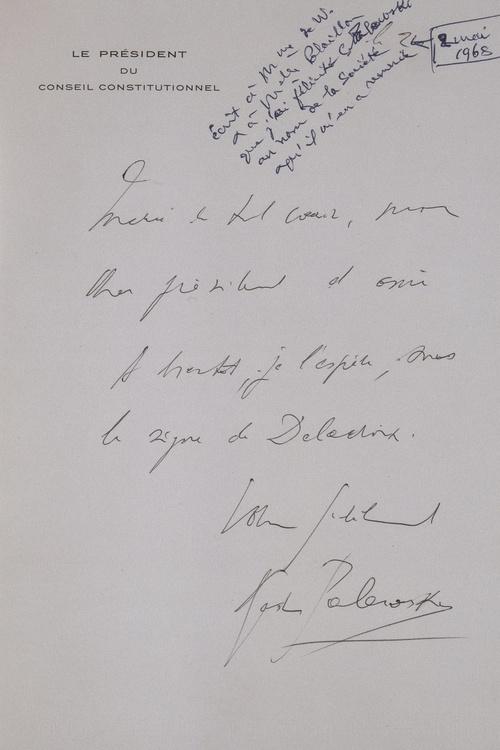 LE PRÉSIDENT
DU
CONSEIL CONSTITUTIONNEL
Écrit à Mme de W.
& à Melle
que j'ai félicité G. Palewski
au nom de la Société
qu'il m'en a remercié
2 mai
1968
Merci de tout cœur, mon
cher président et ami
A bientôt, je l'espère, sous
le signe de Delacroix.
Votre fidèlement
Gaston Palewski